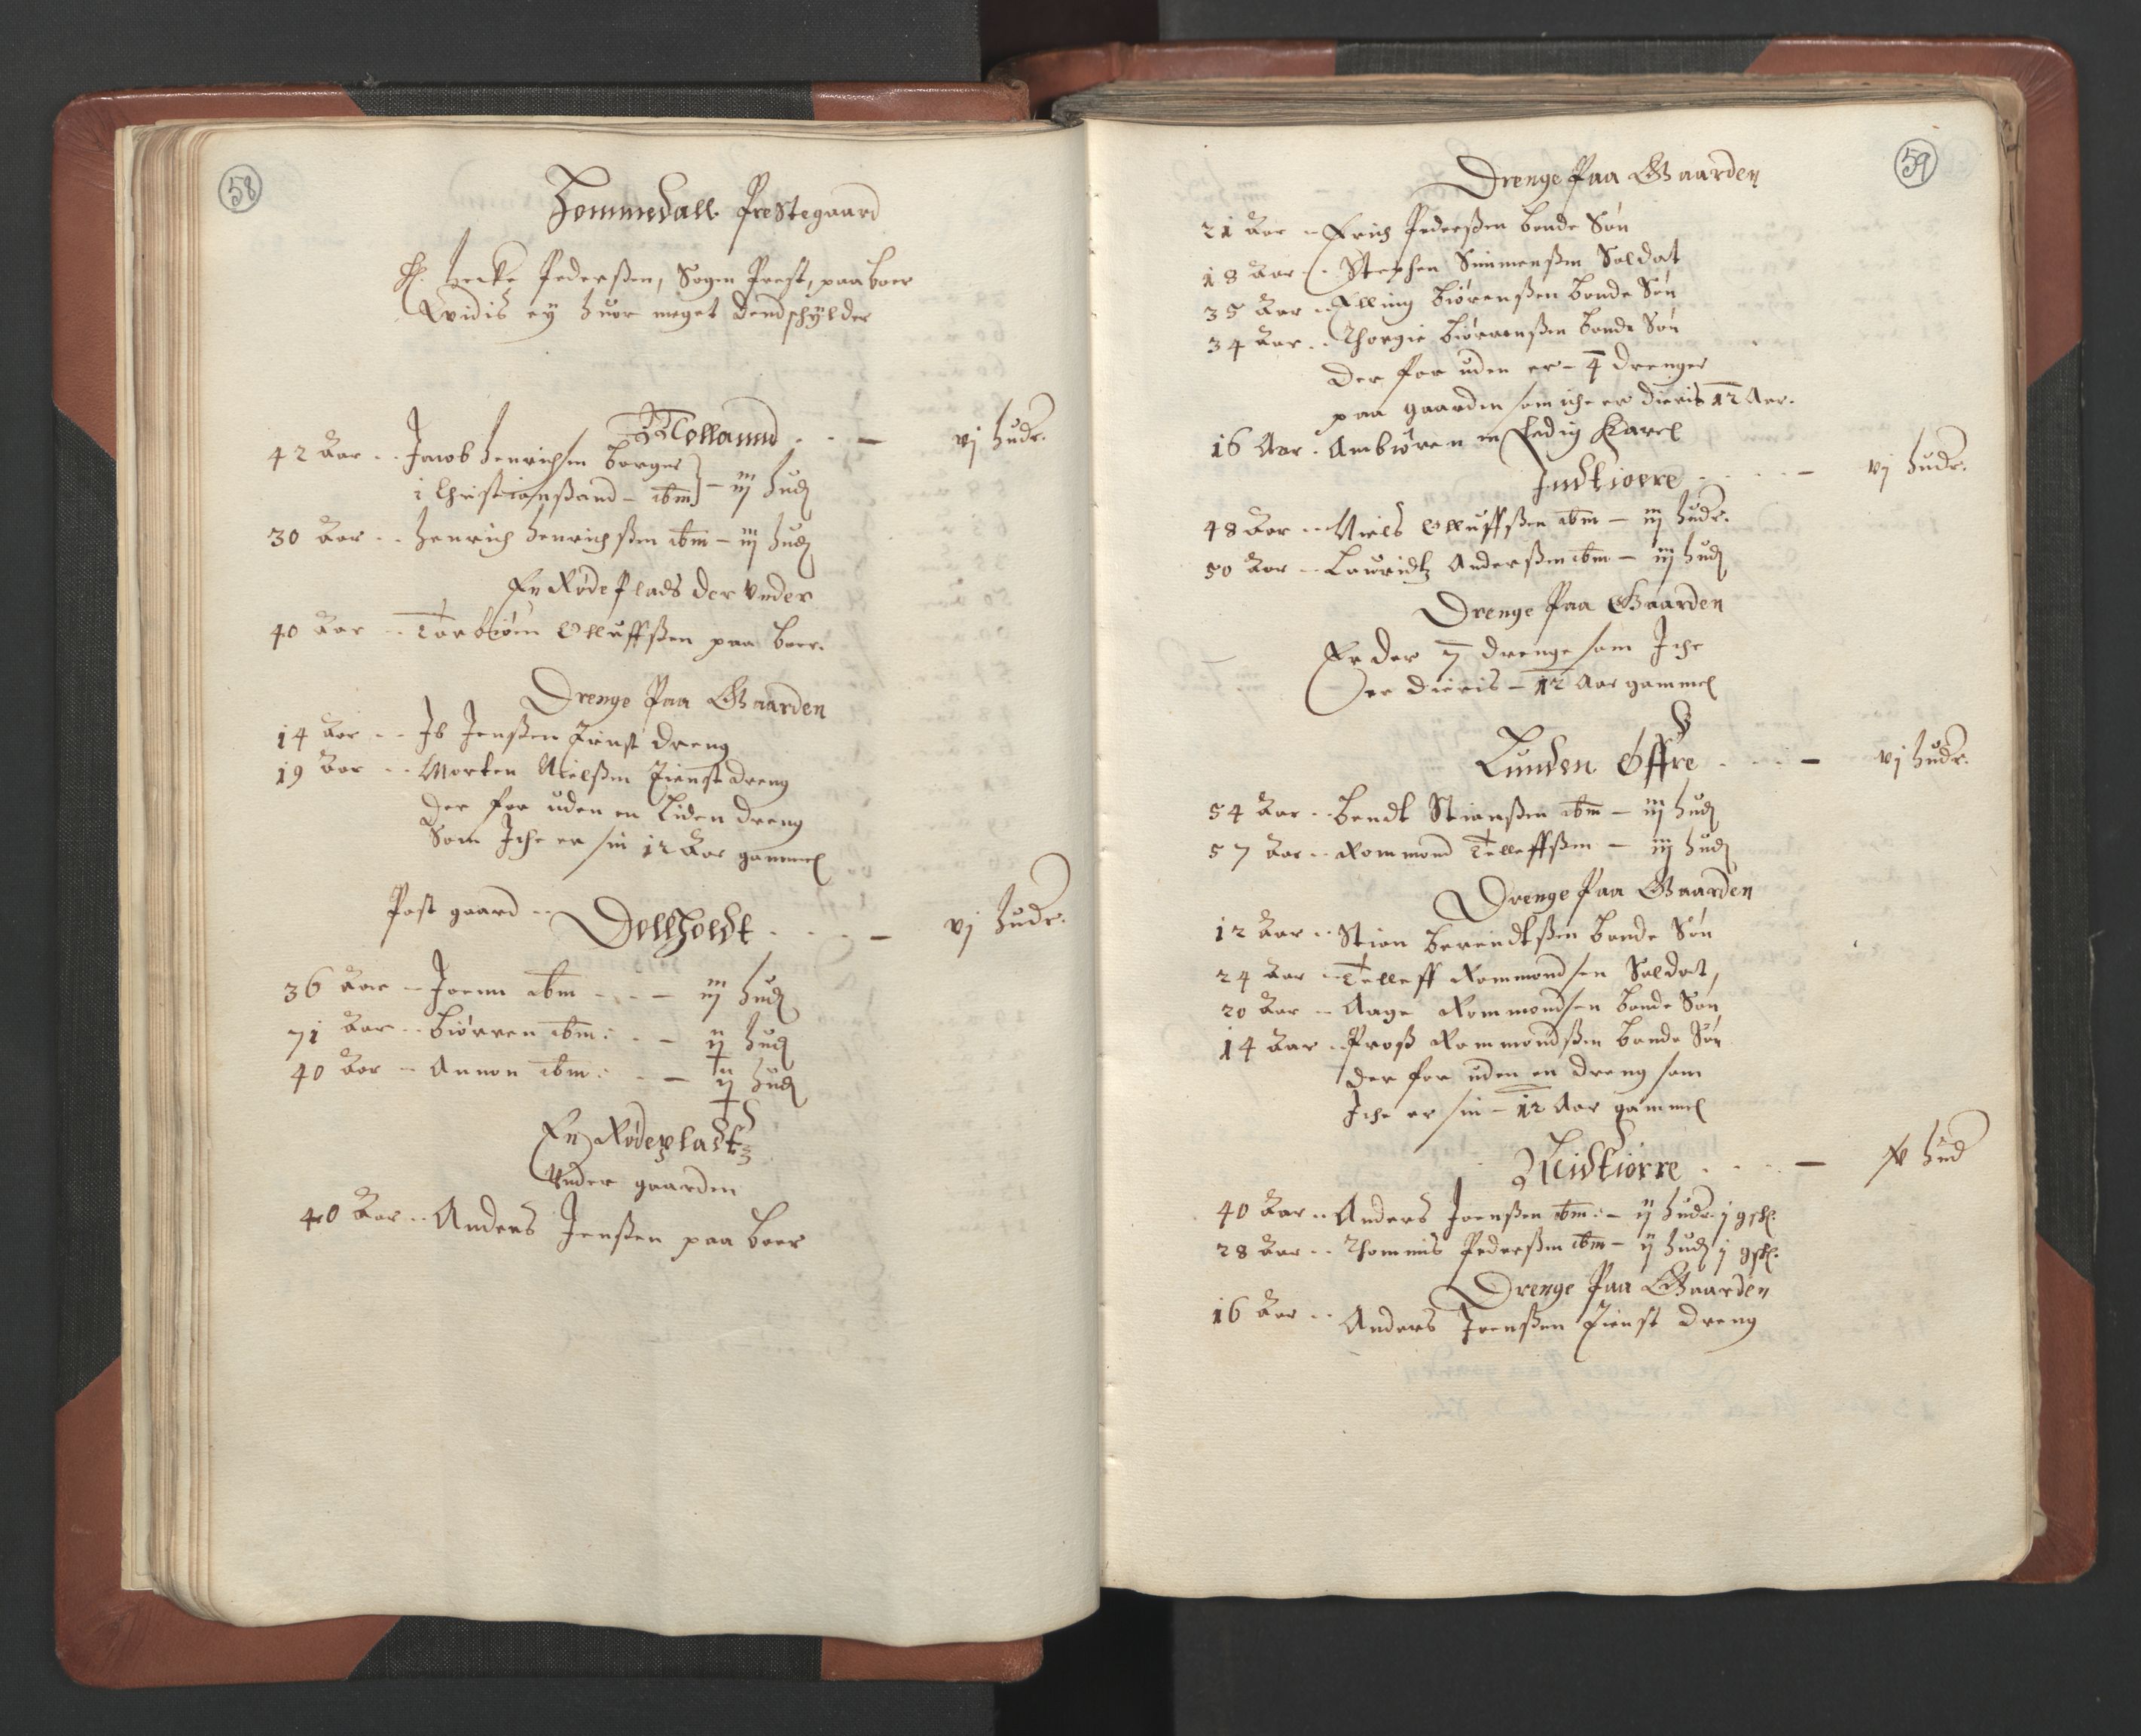 58
Hommedall Prestegaard
H. Lecke Pederßen, Sogen Prest, paaboer
Vvidis eÿ huor meget dend schÿlder
Mollannd - - - vj hudr.
42 Aar - - Jacob Henrichsen borger
i Christianßand - ibm - iij hud
30 Aar - - Henrich Henrichßen ibm - iij hud
En Röde Plads der Vnder
40 Aar - - Torbiörn Olluffßen paa boer.
Drenge Paa Gaarden
14 Aar - - Ib Jenßen Tienst dreng
19 Aar - - Morten Nielßen Tienstdreng
Der for uden en Liden dreng
Som Iche er sin 12 Aar gammel
Post gaard - - Dollholdt - - - vj hudr.
36 Aar - Joenn ibm - - - iij hud
71 Aar - - Biörren ibm: - - ij hud
40 Aar - Annon ibm: - - ij hud
En Rödepladtz
Vnder gaarden
40 Aar - - Anders Jenßen paa boer
59
Drenge Paa Gaarden
21 Aar - Erich Pederßen bonde Sön
18 Aar - - Stephen Simmenßen Soldat
35 Aar - - Elling Biörenßen bonde Sön
34 Aar - - Thorgie Biörrenßen bonde Sön
Der for uden er - 4 drenger
paa gaarden som iche er dieris 12 Aar.
16 Aar - Ambiören en Ledig Karel
Indtioere - - - vj hudr.
48 Aar - - Niels Olluffßen ibm - iij hudr.
50 Aar - Lauridtz Anderßen ibm - iij hud
Drenge Paa Gaarden
Er der ij drenge som Iche
er dieris - 12 Aar gammel
Lunden Öffre - - - vj hudr.
54 Aar - Bendt Stianßen ibm - iij hud
57 Aar - - Rommond Telleffßen - iij hud
Drenge Paa Gaarden
12 Aar - - Stian Berendtßen bonde Sön
24 Aar - Telleff Rommondsen Soldat,
20 Aar - Aage Rommondsen bonde Sön
14 Aar - Proß Rommondßen bonde Sön
Der for uden en dreng som
Iche er sin - 12 Aar gammel
Reidtiorre - - - hud
40 Aar - - Anders Joenßen ibm: - ij hudr. j gsk.
28 Aar - - Thommis Pederßen ibm - ij hud j gsk.
Drenge Paa Gaarden
16 Aar - - Anders Joenßen Tienst dreng